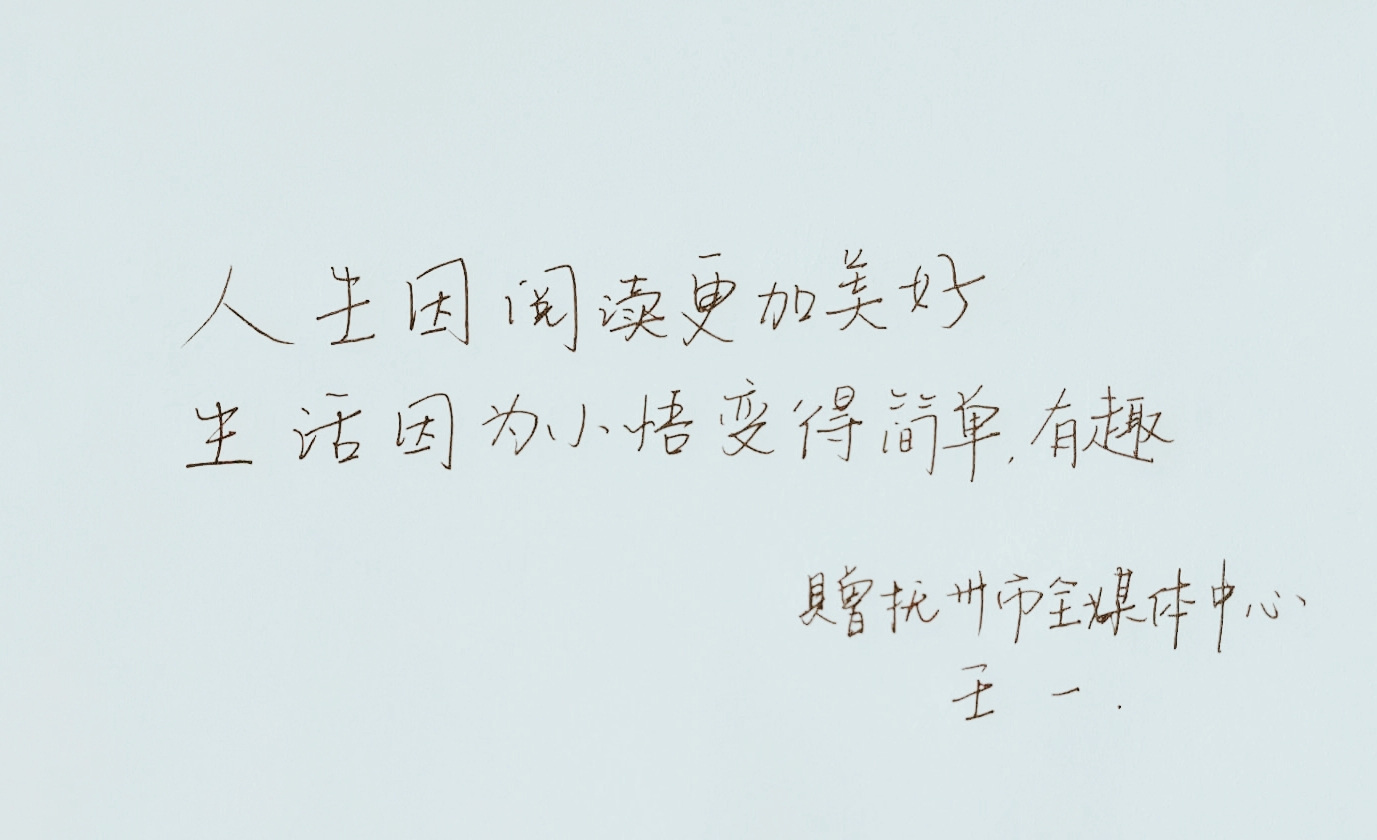 人生因阅读更加美好
生活因为小悟变得简单,有趣
赠抚州市全媒体中心
王一.